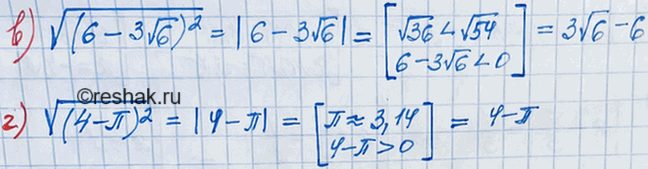 в) √(6 - 3√6)² = |6 - 3√6| = [√36 < √54
6 - 3√6 < 0] = 3√6 - 6
©reshak.ru
г) √(4 - π)² = |4 - π| = [π ≈ 3,14
4 - π > 0] = 4 - π